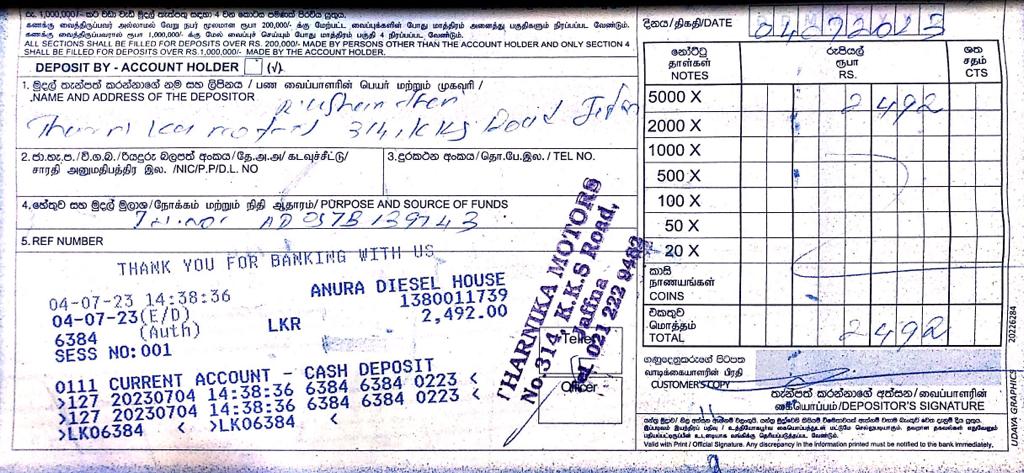 රු. 1,000,000/- කට වඩා වැඩි මුදල් තැන්පත් කරන්නේ නම් 4 වන කොටස පමණක් පිරවිය යුතුය.
கணக்கு வைத்திருப்பவர் அல்லாமல் வேறு நபர் மூலமான ரூபா 200,000/- க்கு மேற்பட்ட வைப்புக்களின் போது மாத்திரம் அனைத்து பகுதிகளும் நிரப்பப்படல் வேண்டும்.
கணக்கு வைத்திருப்பவரால் ரூபா 1,000,000/- க்கு மேல் வைப்புச் செய்யும் போது மாத்திரம் பகுதி 4 நிரப்பப்படல் வேண்டும்.
ALL SECTIONS SHALL BE FILLED FOR DEPOSITS OVER RS. 200,000/- MADE BY PERSONS OTHER THAN THE ACCOUNT HOLDER AND ONLY SECTION 4
SHALL BE FILLED FOR DEPOSITS OVER RS.1,000,000/- MADE BY THE ACCOUNT HOLDER.
DEPOSIT BY - ACCOUNT HOLDER (√).
1. මුදල් තැන්පත් කරන්නාගේ නම සහ ලිපිනය / பண வைப்பாளரின் பெயர் மற்றும் முகவரி /
NAME AND ADDRESS OF THE DEPOSITOR
314, KKS Road
2.ජා.හැ.ප. /වි.ග.බ. /රියදුරු බලපත් අංකය/தே.அ.அ/ கடவுச்சீட்டு/
சாரதி அனுமதிபத்திர இல. /NIC/P.P/D.L. NO
3.දුරකථන අංකය/தொ.பே.இல. / TEL NO.
4.හේතුව සහ මුදල් මූලාශ්‍ර/நோக்கம் மற்றும் நிதி ஆதாரம்/ PURPOSE AND SOURCE OF FUNDS
AD 057B 139743
5. REF NUMBER
THANK YOU FOR BANKING WITH US
04-07-23 14:38:36 ANURA DIESEL HOUSE
04-07-23(E/D) 1380011739
6384 (Auth) LKR 2,492.00
SESS NO:001
0111 CURRENT ACCOUNT - CASH DEPOSIT
>127 20230704 14:38:36 6384 6384 0223 <
>127 20230704 14:38:36 6384 6384 0223 <
>LK06384 < >LK06384 <
THARNIKA MOTORS
No.314, K.K.S Road,
Jaffna
Tel. 021 222 9482
Teller
Officer
දිනය / திகதி/DATE 04072023
නෝට්ටු රුපියල් ශත
தாள்கள் ரூபா சதம்
NOTES RS. CTS
5000 X 2492
2000 X
1000 X
500 X
100 X
50 X
20 X
කාසි
நாணயங்கள்
COINS
එකතුව
மொத்தம்
TOTAL 2492
ගනුදෙනුකරුගේ පිටපත
வாடிக்கையாளரின் பிரதி
CUSTOMER'S COPY
තැන්පත් කරන්නාගේ අත්සන / வைப்பாளரின்
கையொப்பம்/DEPOSITOR'S SIGNATURE
Valid with Print / Official Signature. Any discrepancy in the information printed must be notified to the bank immediately.
20226284
UDAYA GRAPHICS